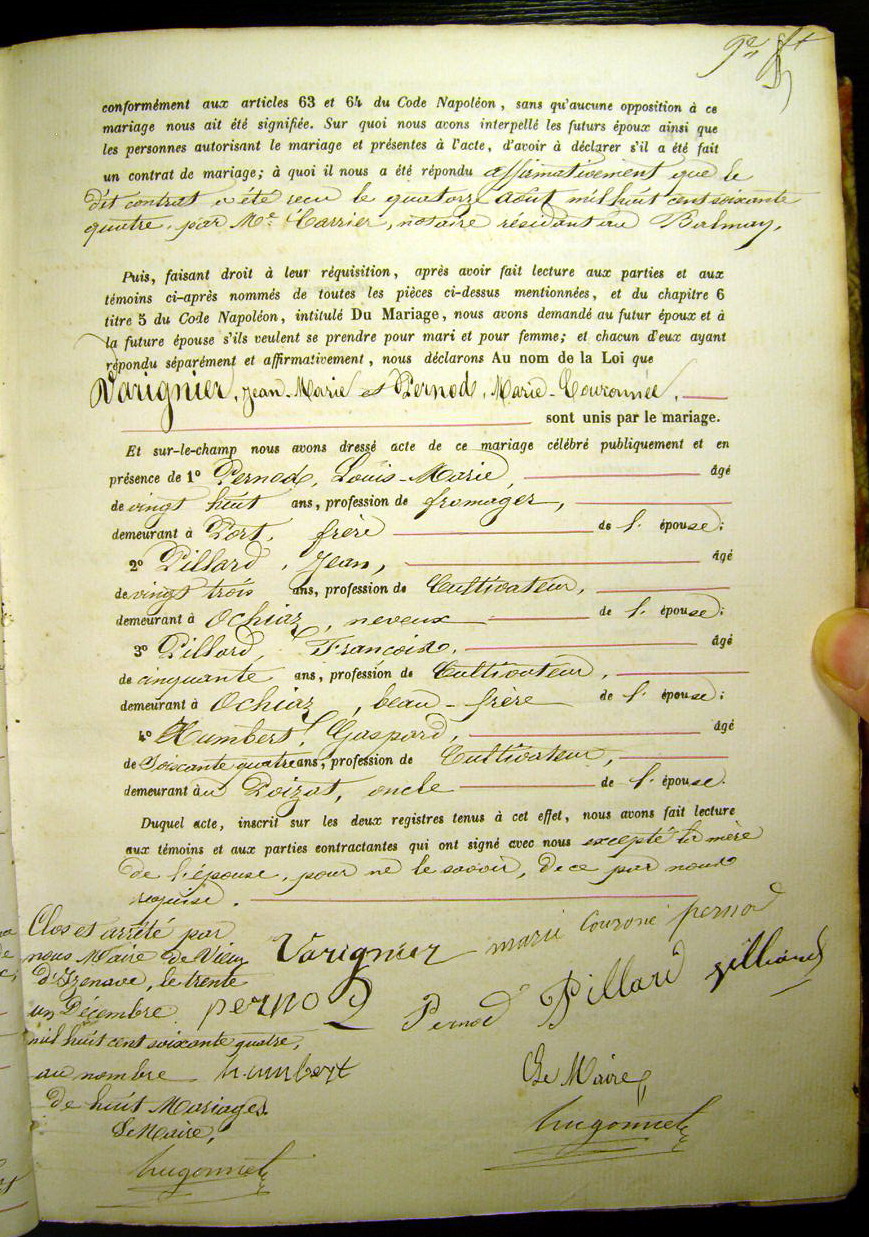 conformément aux articles 63 et 64 du Code Napoléon, sans qu'aucune opposition à ce
mariage nous ait été signifiée. Sur quoi nous avons interpellé les futurs époux ainsi que
les personnes autorisant le mariage et présentes à l'acte, d'avoir à déclarer s'il a été fait
un contrat de mariage; à quoi il nous a été répondu affirmativement que le
dit contrat a été reçu le quatorze août mil huit cent soixante
quatre, par Me Carrier, notaire résidant au Balmay,
Puis, faisant droit à leur réquisition, après avoir fait lecture aux parties et aux
témoins ci-après nommés de toutes les pièces ci-dessus mentionnées, et du chapitre 6
titre 5 du Code Napoléon, intitulé Du Mariage, nous avons demandé au futur époux et à
la future épouse s'ils veulent se prendre pour mari et pour femme; et chacun d'eux ayant
répondu séparément et affirmativement, nous déclarons Au nom de la Loi que
Varignier, Jean-Marie et Pernod, Marie-Couronnée,
sont unis par le mariage.
Et sur-le-champ nous avons dressé acte de ce mariage célébré publiquement et en
présence de 1º Pernod, Louis-Marie, âgé
de vingt huit ans, profession de fromager,
demeurant à Port, frère de l'épouse;
2º Pillard, Jean, âgé
de vingt trois ans, profession de Cultivateur,
demeurant à Ochiaz, neveux de l'épouse;
3º Pillard, François, âgé
de cinquante ans, profession de Cultivateur,
demeurant à Ochiaz, beau-frère de l'épouse;
4º Humbert, Gaspard, âgé
de Soixante quatre ans, profession de Cultivateur,
demeurant au Poizat, oncle de l'épouse.
Duquel acte, inscrit sur les deux registres tenus à cet effet, nous avons fait lecture
aux témoins et aux parties contractantes qui ont signé avec nous excepté la mère
de l'épouse, pour ne le savoir, de ce par nous
requise.
Clos et arrêté par
nous Maire de Vieu
d'Izenave, le trente
un Décembre
mil huit cent soixante quatre,
au nombre
de huit Mariages.
Le Maire,
hugonnet
Varignier marie Couroné pernod
pernod Pernod Pillard pilliard
humbert
Le Maire
hugonnet